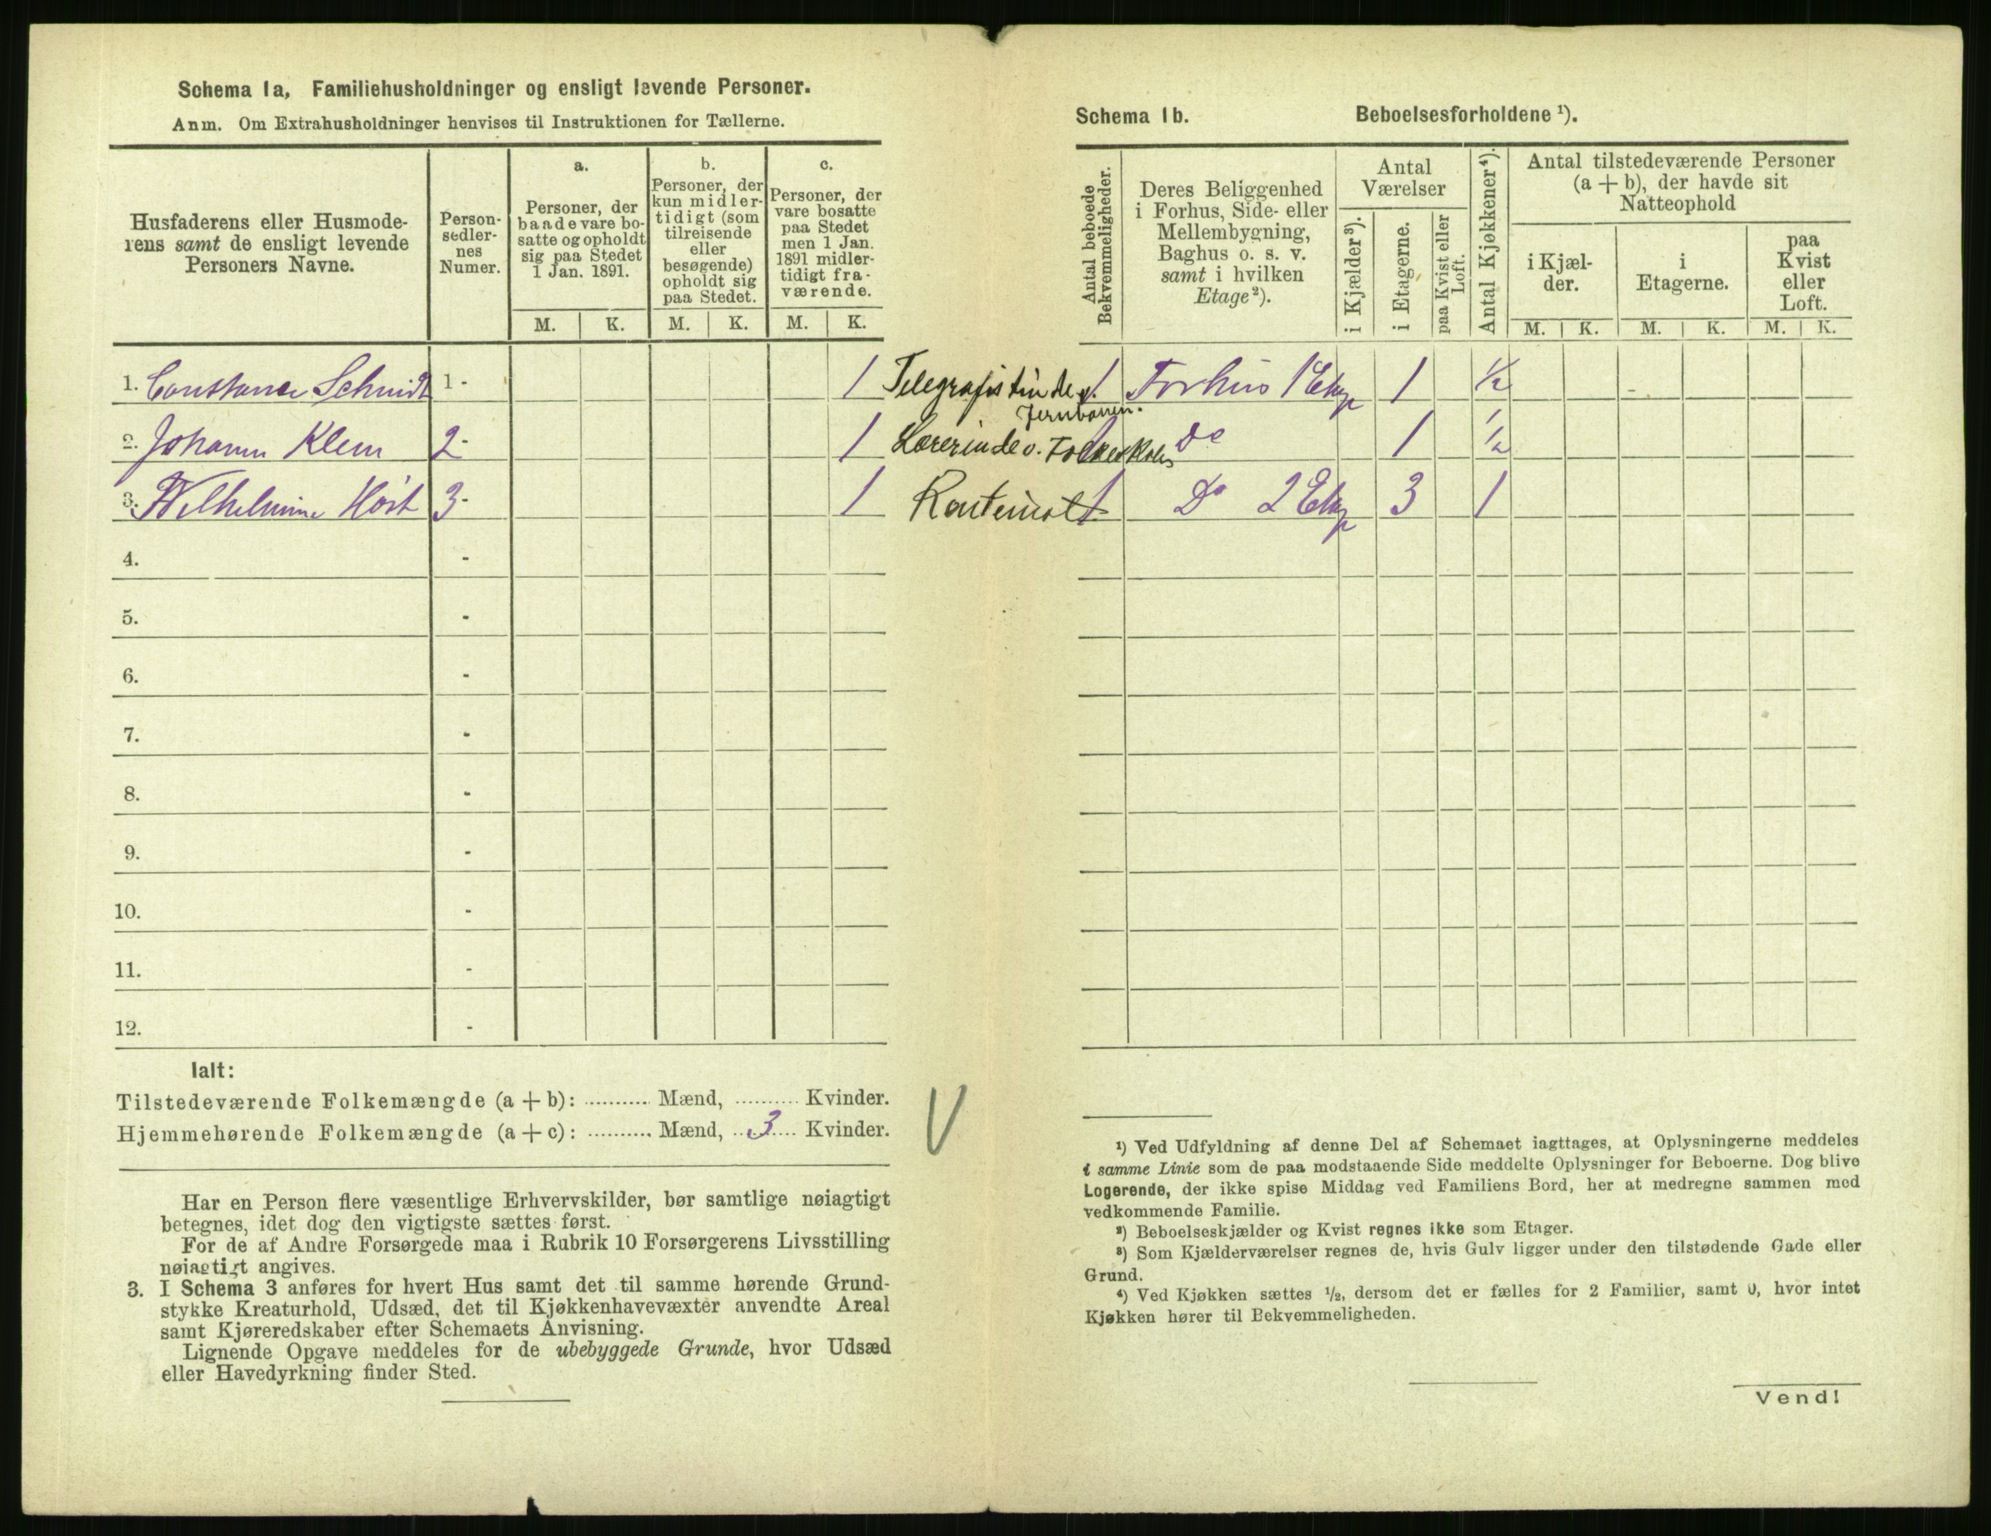 Schema 1a, Familiehusholdninger og ensligt levende Personer.
Anm. Om Extrahusholdninger henvises til Instruktionen for Tællerne.
Husfaderens eller Husmode-
rens samt de ensligt levende
Personers Navne.
Person-
sedler-
nes
Numer.
a.
Personer, der
baade vare bo-
satte og opholdt
sig paa Stedet
1 Jan. 1891.
b.
Personer, der
kun midler-
tidigt (som
tilreisende
eller
besøgende)
opholdt sig
paa Stedet.
c.
Personer, der
vare bosatte
paa Stedet
men 1 Jan.
1891 midler-
tidigt fra-
værende.
M. K. M. K. M. K.
1. Constance Schmidt 1 - 1 Telegrafistinde v.
Jernbanen.
2. Johanne Klem 2 - 1 Lærerinde v. Folkeskolen
3. Wilhelmine Höst 3 - 1
4. -
5. -
6. -
7. -
8. -
9. -
10. -
11. -
12. -
Ialt:
Tilstedeværende Folkemængde (a + b): .......... Mænd, .......... Kvinder.
Hjemmehørende Folkemængde (a + c): .......... Mænd, 3 Kvinder.
V
Har en Person flere væsentlige Erhvervskilder, bør samtlige nøiagtigt
betegnes, idet dog den vigtigste sættes først.
For de af Andre Forsørgede maa i Rubrik 10 Forsørgerens Livsstilling
nøiagtigt angives.
3. I Schema 3 anføres for hvert Hus samt det til samme hørende Grund-
stykke Kreaturhold, Udsæd, det til Kjøkkenhavevæxter anvendte Areal
samt Kjøreredskaber efter Schemaets Anvisning.
Lignende Opgave meddeles for de ubebyggede Grunde, hvor Udsæd
eller Havedyrkning finder Sted.
Schema 1b. Beboelsesforholdene ¹).
Antal beboede
Bekvemmeligheder.
Deres Beliggenhed
i Forhus, Side- eller
Mellembygning,
Baghus o. s. v.
samt i hvilken
Etage²).
Antal
Værelser
i Kjælder³).
i Etagerne.
paa Kvist eller
Loft.
Antal Kjøkkener⁴).
Antal tilstedeværende Personer
(a + b), der havde sit
Natteophold
i Kjæl-
der.
i
Etagerne.
paa
Kvist
eller
Loft.
M. K. M. K. M. K.
1 Forhus 1 Etage 1 ½
1 Do 1 ½
1 Do 2 Etage 3 1
¹) Ved Udfyldning af denne Del af Schemaet iagttages, at Oplysningerne meddeles
i samme Linie som de paa modstaaende Side meddelte Oplysninger for Beboerne. Dog blive
Logerende, der ikke spise Middag ved Familiens Bord, her at medregne sammen med
vedkommende Familie.
²) Beboelseskjælder og Kvist regnes ikke som Etager.
³) Som Kjælderværelser regnes de, hvis Gulv ligger under den tilstødende Gade eller
Grund.
⁴) Ved Kjøkken sættes ½, dersom det er fælles for 2 Familier, samt 0, hvor intet
Kjøkken hører til Bekvemmeligheden.
Vend!